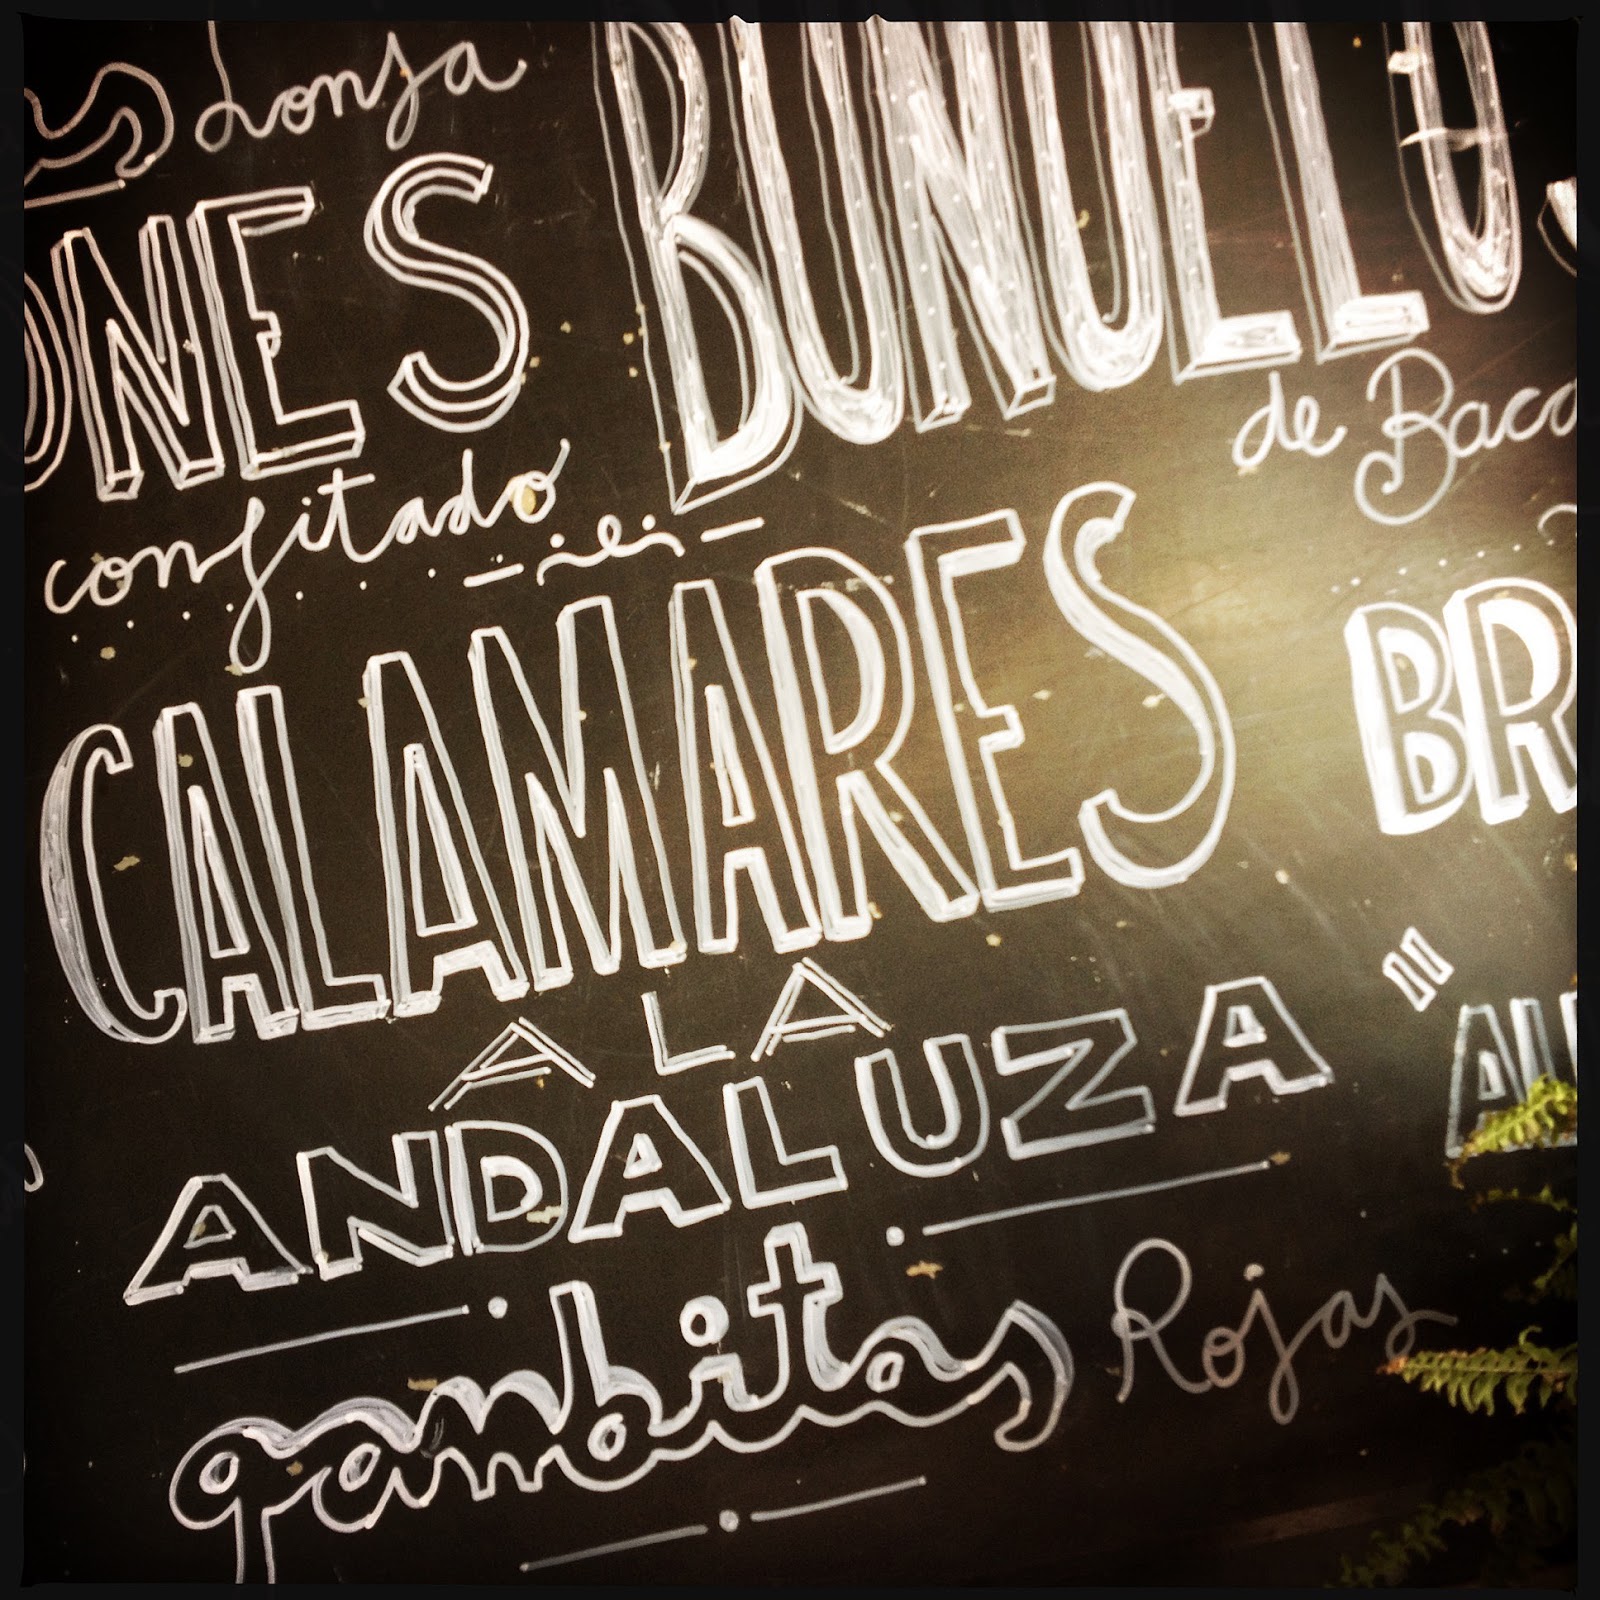 Lonja
ONES
confitado
BUNUELOS
de Baca
CALAMARES
A LA
ANDALUZA "
gambitas Rojas
BR